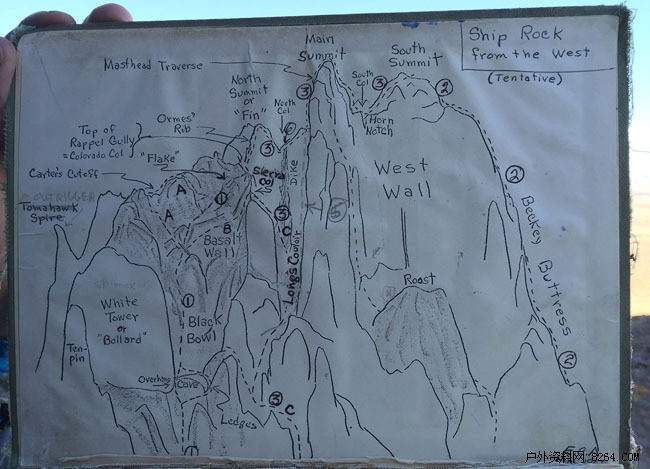 Ship Rock
from the West
(Tentative)
Main
Summit
South
Summit
Masthead Traverse
North
Summit
or
"Fin"
North
Col
South
Col
Horn
Notch
Ormes'
Rib
Top of
Rappel Gully
= Colorado Col
"Flake"
Carter's Cutoff
OUTRIGGER
Tomahawk
Spire
Sierra
Col
Dike
West
Wall
Basalt
Wall
Long's Couloir
Roost
Beckey Buttress
White
Tower
or
"Bollard"
Black
Bowl
Ten-
pin
Overhang
Cave
Ledges
A
A
B
C
C
1
1
1
2
2
2
3
3
3
3
3
5
户外资料网·8264.COM